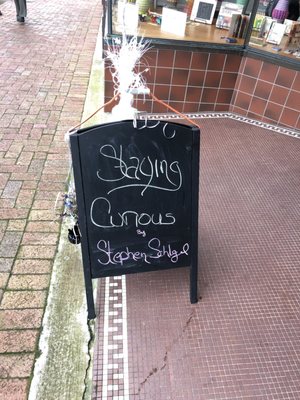 Staying
Curious
By
Stephen Schlgel